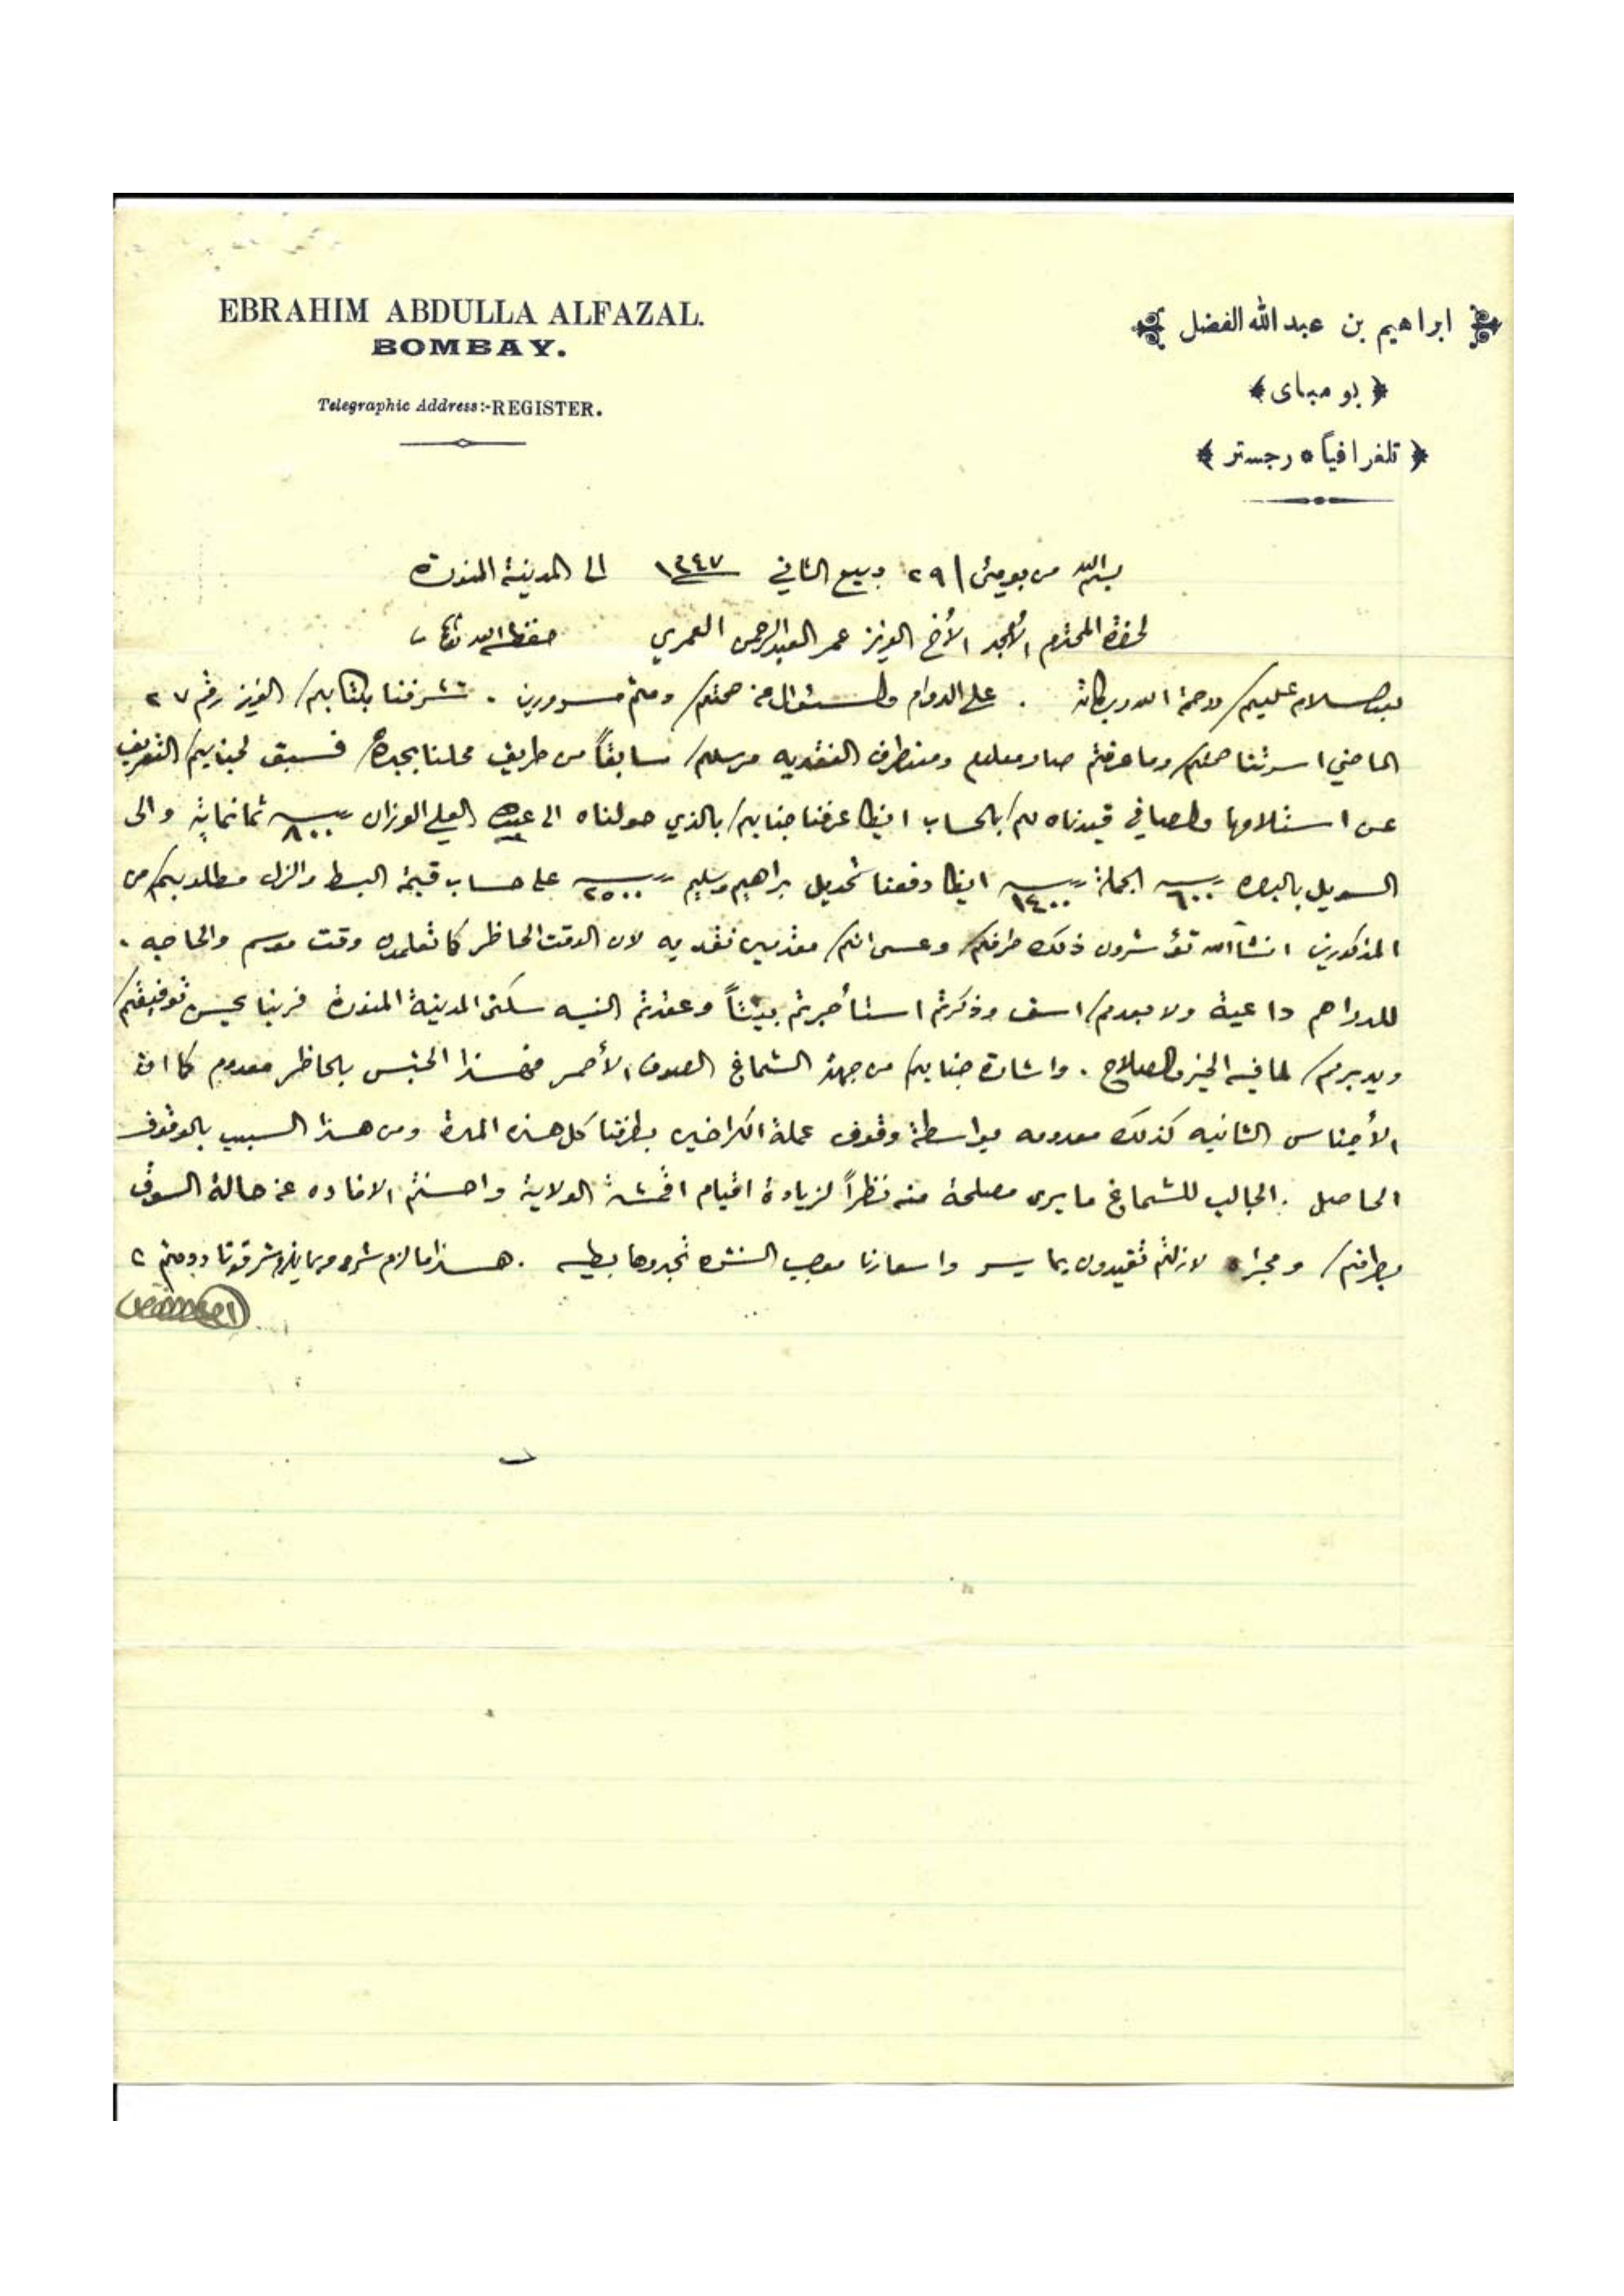 EBRAHIM ABDULLA ALFAZAL.
BOMBAY.
Telegraphic Address:-REGISTER.
ابراهيم بن عبدالله الفضل
﴿ بومباى ﴾
﴿ تلغرافياً * رجستر ﴾
بسم الله من بومبئ / ٢٩ ربيع الثاني ١٣٤٧ الى المدينة المنورة
لحضرة المحترم الأمجد الأخ العزيز عمر العبدالرحمن العمري حفظه الله تعالى
بعد السلام عليكم ورحمة الله وبركاته . على الدوام والسئوال عن صحتكم ومنتم مسرورين . تشرفنا بكتابكم العزيز رقم ٢٧
الماضي اسرتنا صحتكم وما عرفتم صار معلوم ومنطرف النقديه مرسلكم سابقاً من طريق محلنا بجدة فسبق لجنابكم التعريف
عن استلامها والصافي قيدناه لكم بالحساب ايضا عرفنا جنابكم بالذي حولناه الى العلي الوزان ٨٠٠ ثمانماية والى
السويل بالبصره ٦٠٠ الجملة ١٤٠٠ ايضا دفعنا تحويل براهيم وسليم ٢٥٠٠ على حساب قيمة البسط والزل مطلوبكم من
المذكورين انشاالله تؤشرون ذلك طرفكم وعسى انكم مقدمين نقديه لان الوقت الحاظر كما تعلمون وقت موسم والحاجه .
للدراهم داعية ولا مبدوكم اسف وذكرتم استأجرتم بيتاً وعقدتم النيه سكنى المدينة المنورة فربنا يحسن توفيقكم
ويدبركم لما فيه الخير والصلاح . واشارة جنابكم من جهة الشماغ الصوف الأحمر فهذا الجنس بالحاظر معدوم كما ان
الأجناس الثانيه كذلك معدومه بواسطة وقوف عملة الكراخين بطرفنا كل هذه المدة ومن هذا السبب بالوقوف
الحاصل . الجالب للشماغ ما يرى مصلحة منه نظراً لزيادة اقيام اقمشة الولاية واحسنتم الافاده عن حالة السوق
بطرفكم ومجراه لازلتم تفيدون بما يسر واسعارنا موجب النشره تجدوها بطيه . هذا ما لزم شرفونا ودمتم